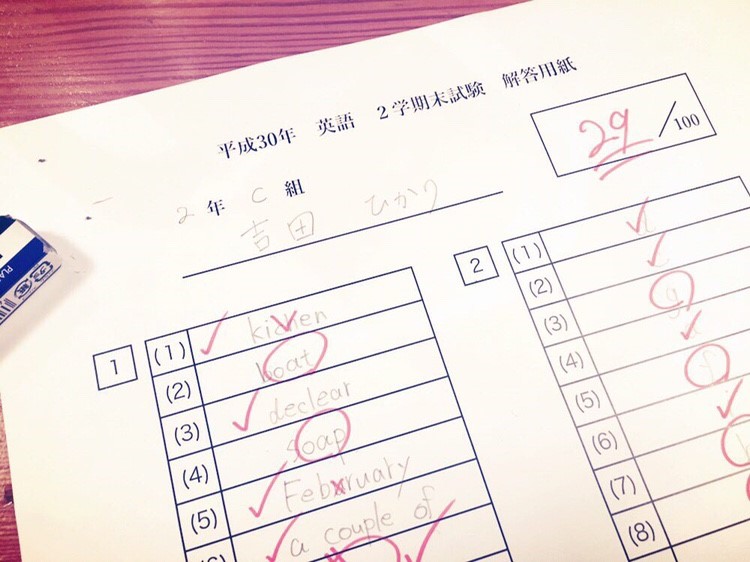 平成30年 英語 2学期末試験 解答用紙
29/100
2年 C 組
吉田 ひかり
1
(1) kichen
(2) boat
(3) declear
(4) soap
(5) Febxruary
a couple of
2
(1)
(2)
(3) g
(4)
(5) f
(6)
(7)
(8)
PLA